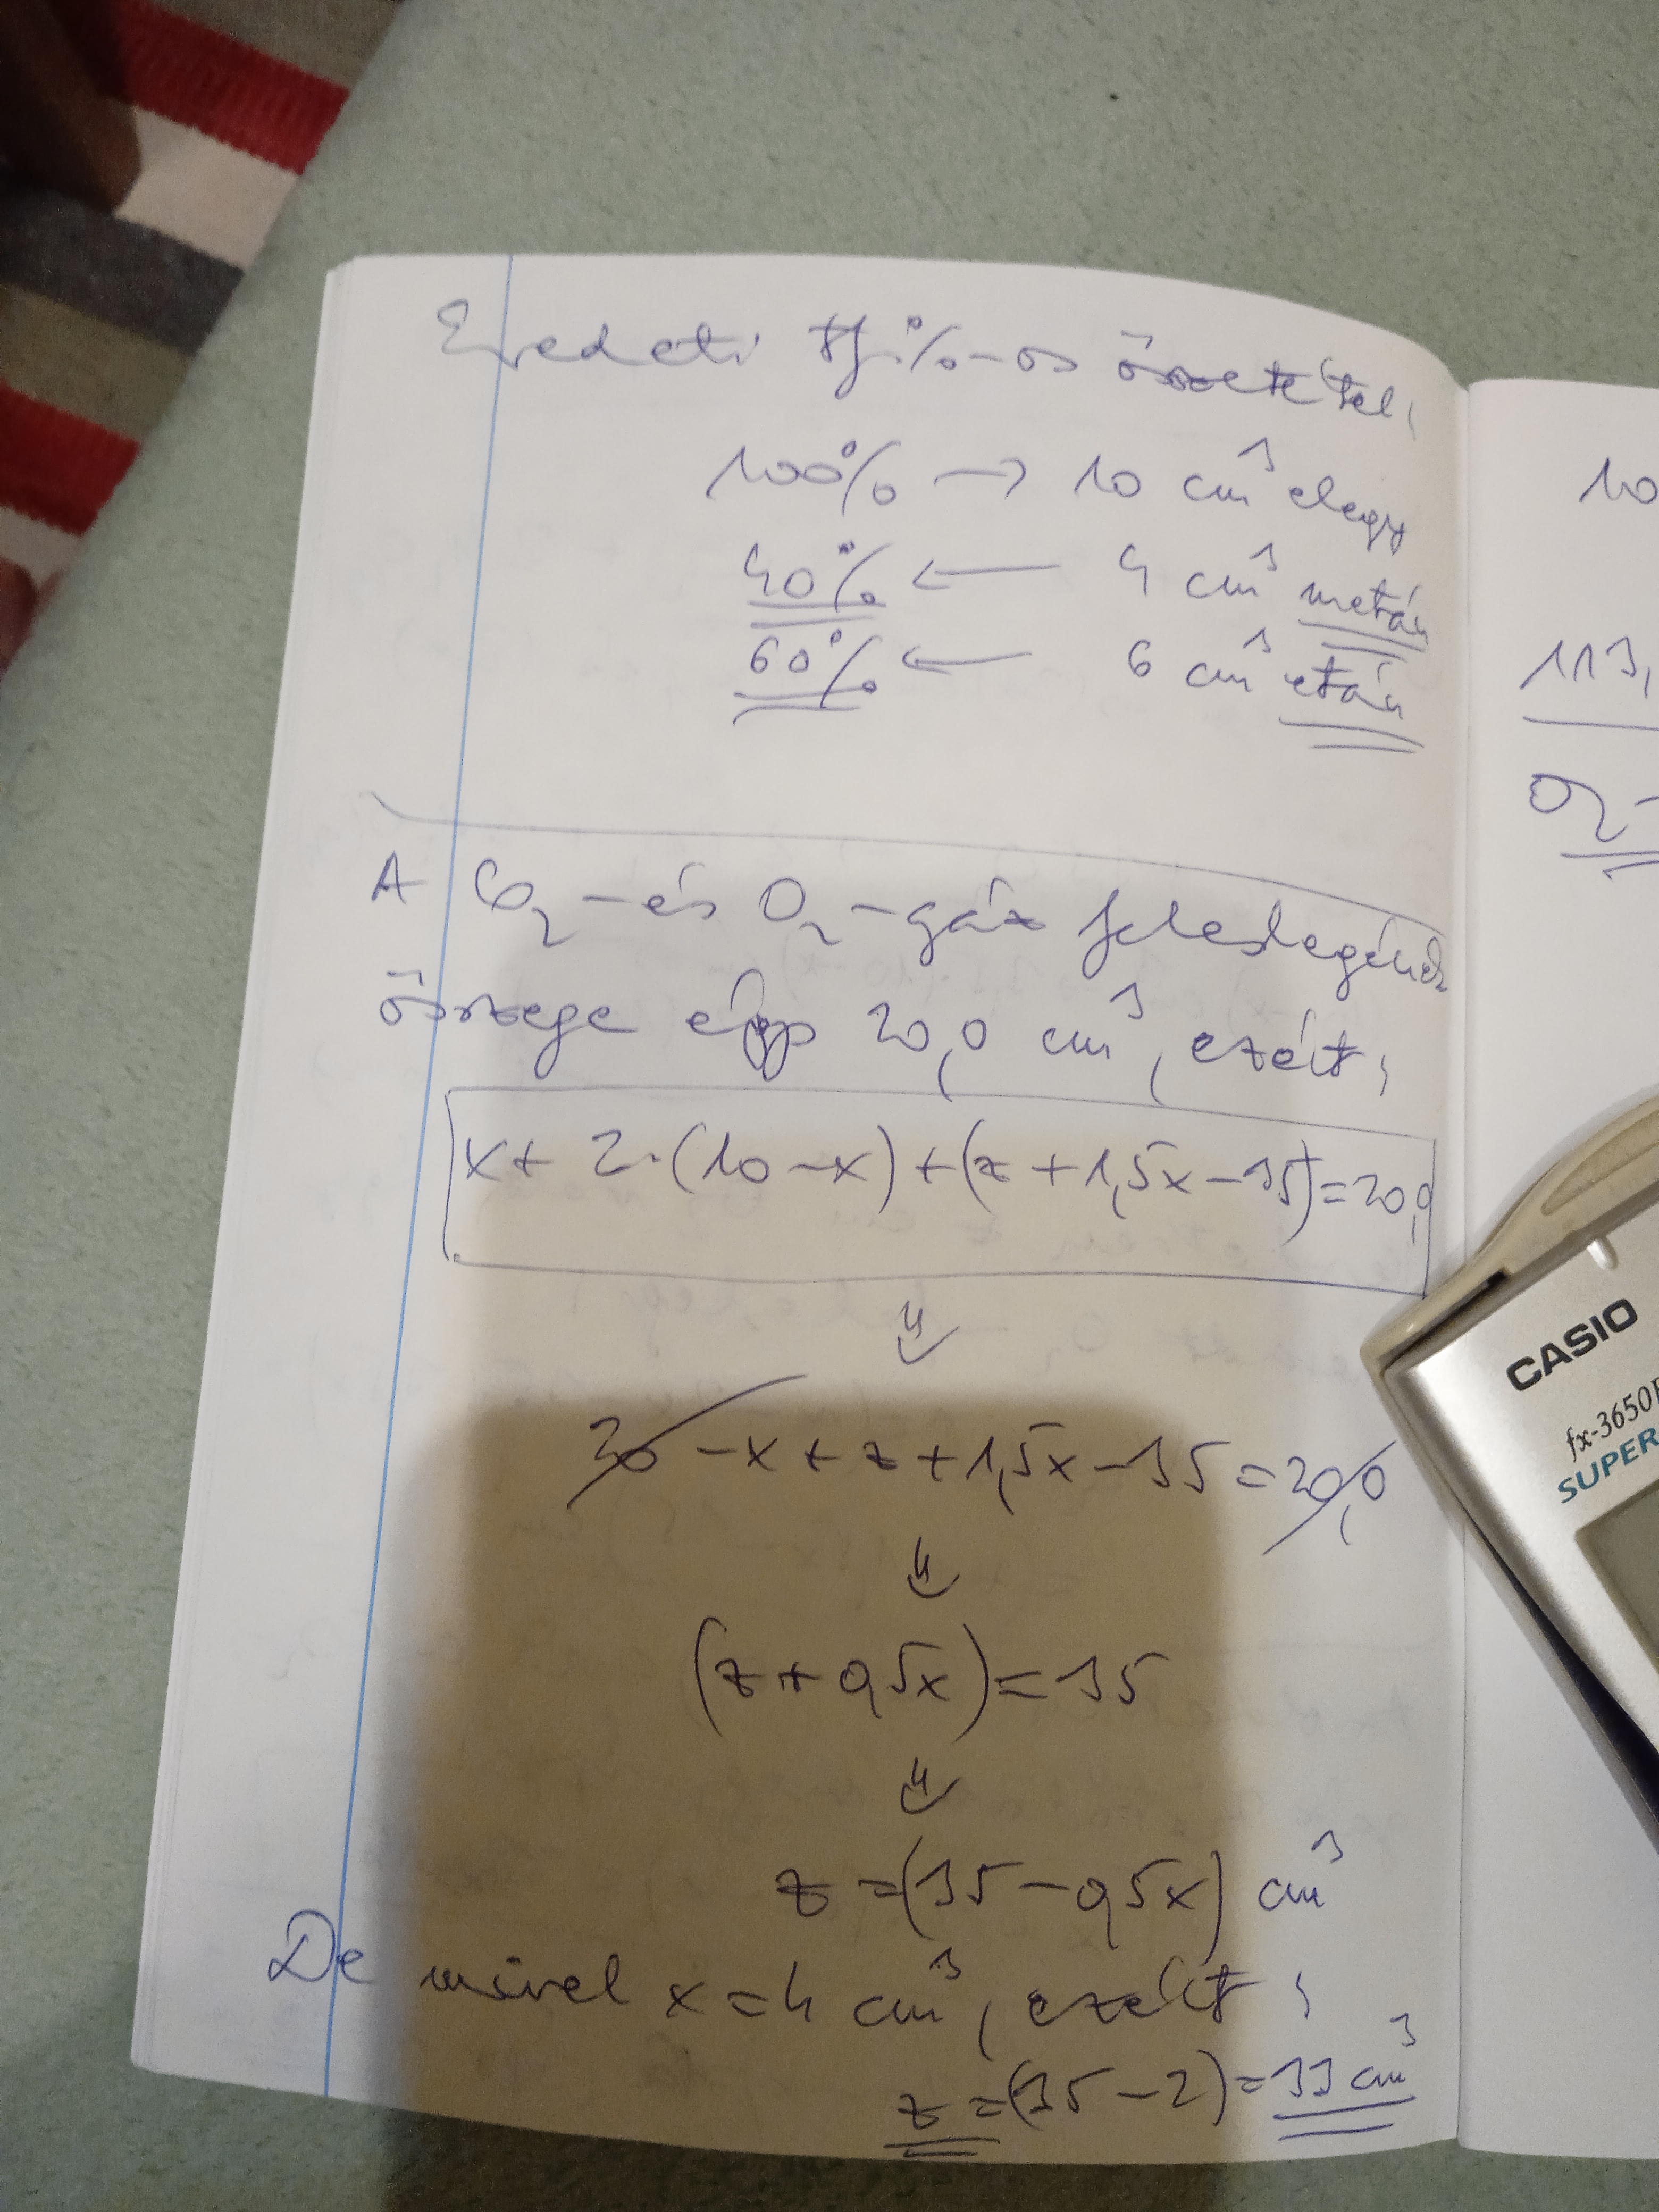 Eredeti tf.%-os összetétel:
100% → 10 cm³ elegy
40% ← 4 cm³ metán
60% ← 6 cm³ etán
A CO₂-és O₂-gáz feleslegének
összege épp 20,0 cm³, ezért:
x + 2·(10-x) + (z + 1,5x - 35) = 20,0
⇓
20 - x + z + 1,5x - 35 = 20,0
⇓
(z + 0,5x) = 35
⇓
z = (35 - 0,5x) cm³
De mivel x = 4 cm³, ezért:
z = (35 - 2) = 33 cm³
10
113,
O₂-
CASIO
fx-3650P
SUPER